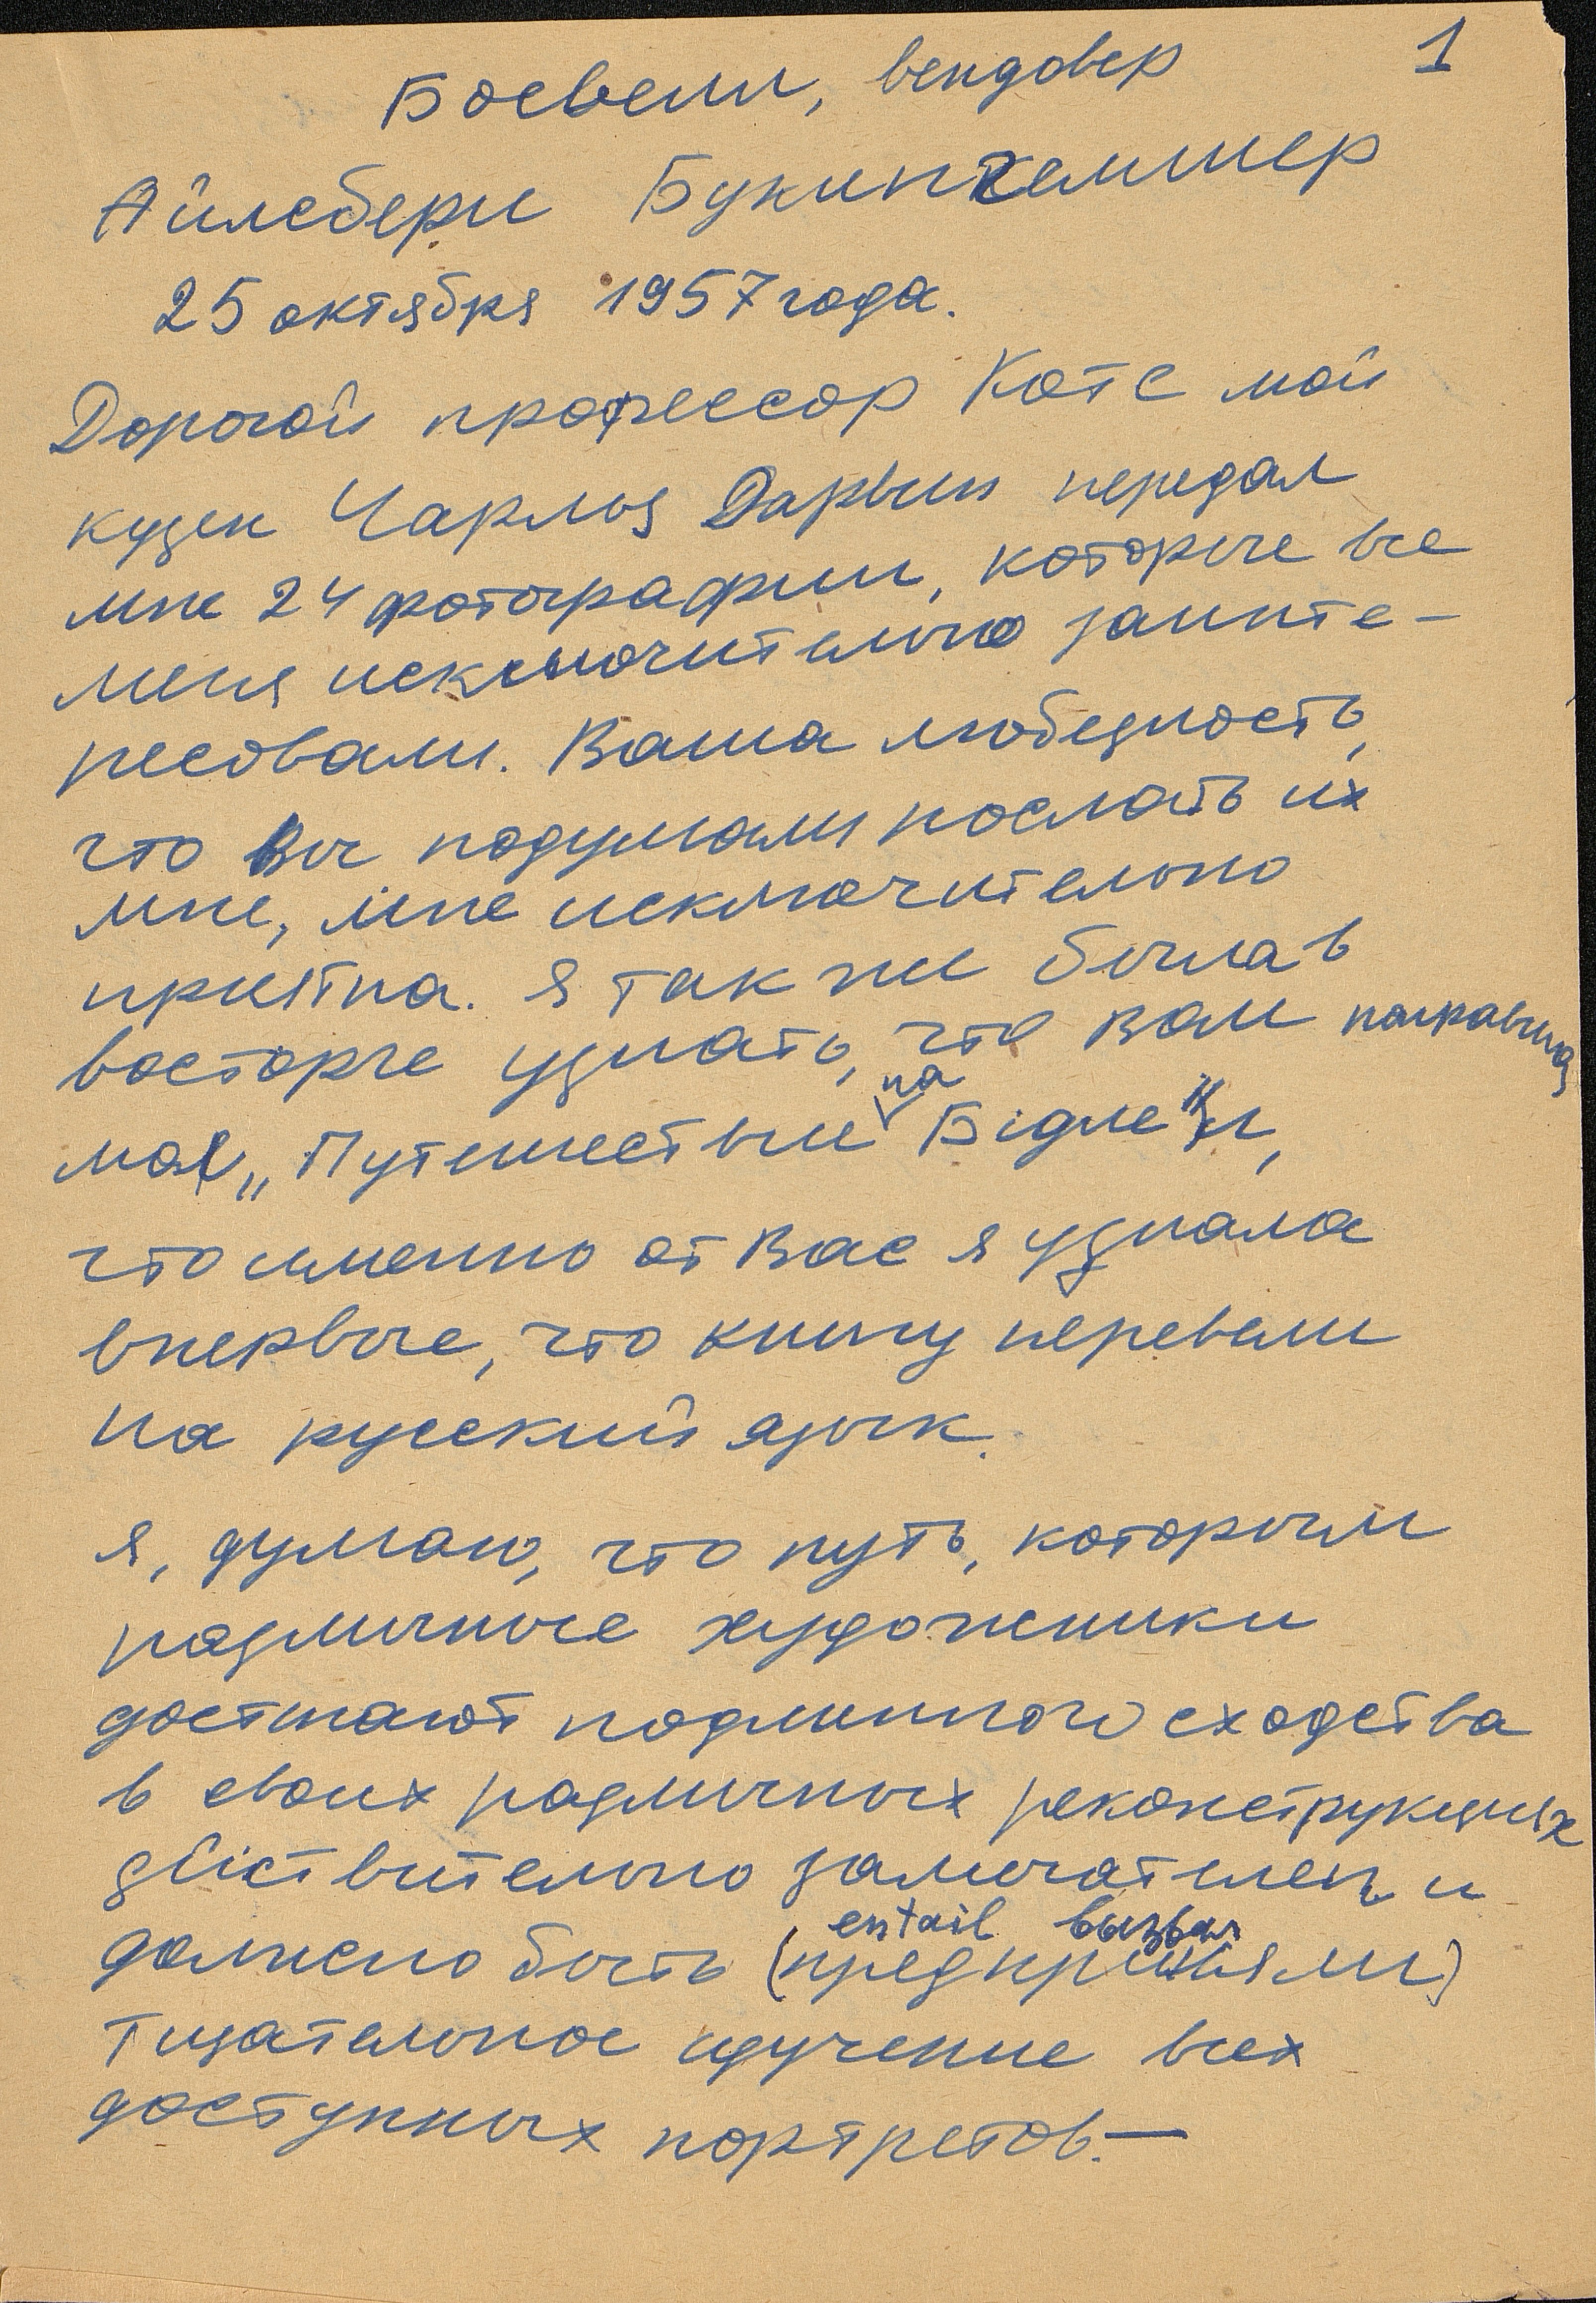 1
Босвелл, Вендовер
Айлсбери Букингемшер
25 октября 1957 года.
Дорогой профессор Котс мой
кузен Чарльз Дарвин передал
мне 24 фотографии, которые все
меня исключительно заинте-
ресовали. Ваша любезность,
что Вы подумали послать их
мне, мне исключительно
приятна. Я так же была в
восторге узнать, что Вам понравилась
моя „Путешествие на Бигле",
что именно от Вас я узнала
впервые, что книгу перевели
на русский язык.
Я, думаю, что путь, которым
различные художники
достигают подлинного сходства
в своих различных реконструкциях
действительно замечателен и
entail вызвал
должено быть (предприняли)
тщательное изучение всех
доступных портретов.—